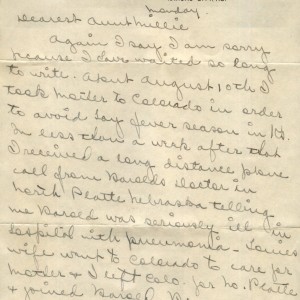 Monday.
Dearest Aunt Millie
Again I say I am sorry
because I have waited so long
to write. About August 10th I
took Mother to Colorado in order
to avoid hay fever season in
In less than a week after that
I received a long distance phone
call from Harolds doctor in
North Platte Nebraska telling
me Harold was seriously ill in
hospital with pneumonia -
wife went to Colorado to care for
Mother & I left Colo. for No. Platte
& joined Harold